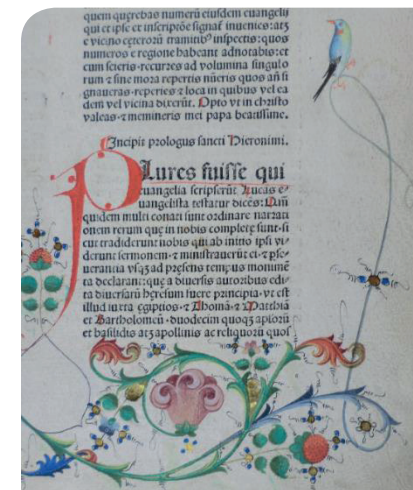 quem querebas numerū eiusdem euangelii
qui et ipse ex inscriptōe signat inuenies: atqꝫ
e vicino ceterorū tramitibꝰ inspectis: quos
numeros e regione habeant adnotabis: et
cum scieris· recures ad volumina singulo
rum ⁊ sine mora repertis nūeris quos añ si
gnaueras· reperies ⁊ loca in quibus vel ea
dem vel vicina dixerūt. Opto vt in christo
valeas· ⁊ memineris mei papa beatissime.
Incipit prologus sancti Hieronimi.
PLures fuisse qui
euangelia scripserūt Lucas e
uangelista testatur dicēs: Qm̄
quidem multi conati sunt ordinare narrati
onem rerum que in nobis complete sunt· si
cut tradiderunt nobis qui ab initio ipsi vi-
derunt sermonem· ⁊ ministrauerūt ei· ⁊ pse-
uerantia vsqꝫ ad presens tempus monimē
ta declarant: que a diuersis auctoribus edi-
ta diuersarū heresum fuere principia· vt est
illud iuxta egiptios· ⁊ Thomā· ⁊ Matthiā
et Bartholomeū· duodecim quoqꝫ aplorū
et basilidis atqꝫ apollinis ac reliquorū quos